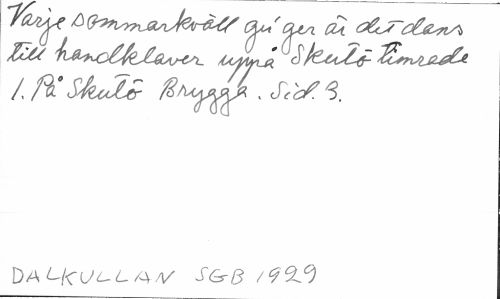 Varje sommarkväll gu'ger är det dans
till handklaver uppå Skutö timrade
1. På Skutö Brygga. Sid. 3.
DALKULLAN SGB 1929